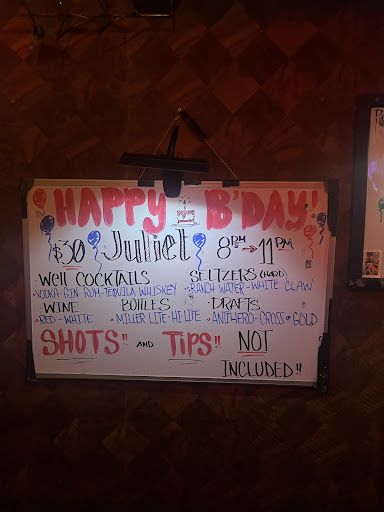 HAPPY B'DAY!
$30 Juliet 8PM → 11PM
WELL COCKTAILS SELTZERS (HARD)
• VODKA-GIN-RUM-TEQUILA-WHISKEY • RANCH WATER-WHITE CLAW
WINE BOTTLES DRAFTS
• RED-WHITE • MILLER LITE-HI LIFE • ANTIHERO-CROSS OF GOLD
SHOTS!! AND TIPS!! NOT
INCLUDED!!